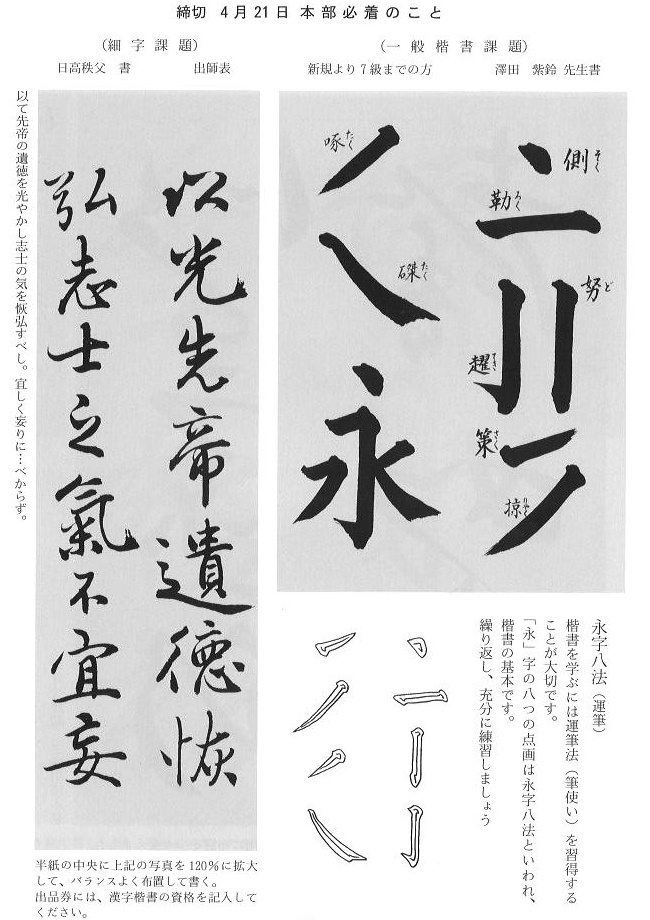 締切 4月21日 本部必着のこと
(一般楷書課題)
新規より7級までの方 澤田 紫鈴 先生書
側 そく
勒 ろく
努 ど
趯 てき
策 さく
掠 りゃく
啄 たく
磔 たく
永
永字八法(運筆)
楷書を学ぶには運筆法(筆使い)を習得する
ことが大切です。
「永」字の八つの点画は永字八法といわれ、
楷書の基本です。
繰り返し、充分に練習しましょう
(細字課題)
日高秩父 書 出師表
以光先帝遺德恢
弘志士之氣不宜妄
以て先帝の遺徳を光やかし志士の気を恢弘すべし。宜しく妄りに…べからず。
半紙の中央に上記の写真を120%に拡大
して、バランスよく布置して書く。
出品券には、漢字楷書の資格を記入して
ください。